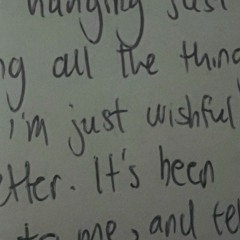 hanging just
ng all the thing
i'm just wishful
etter. It's been
to me, and tel